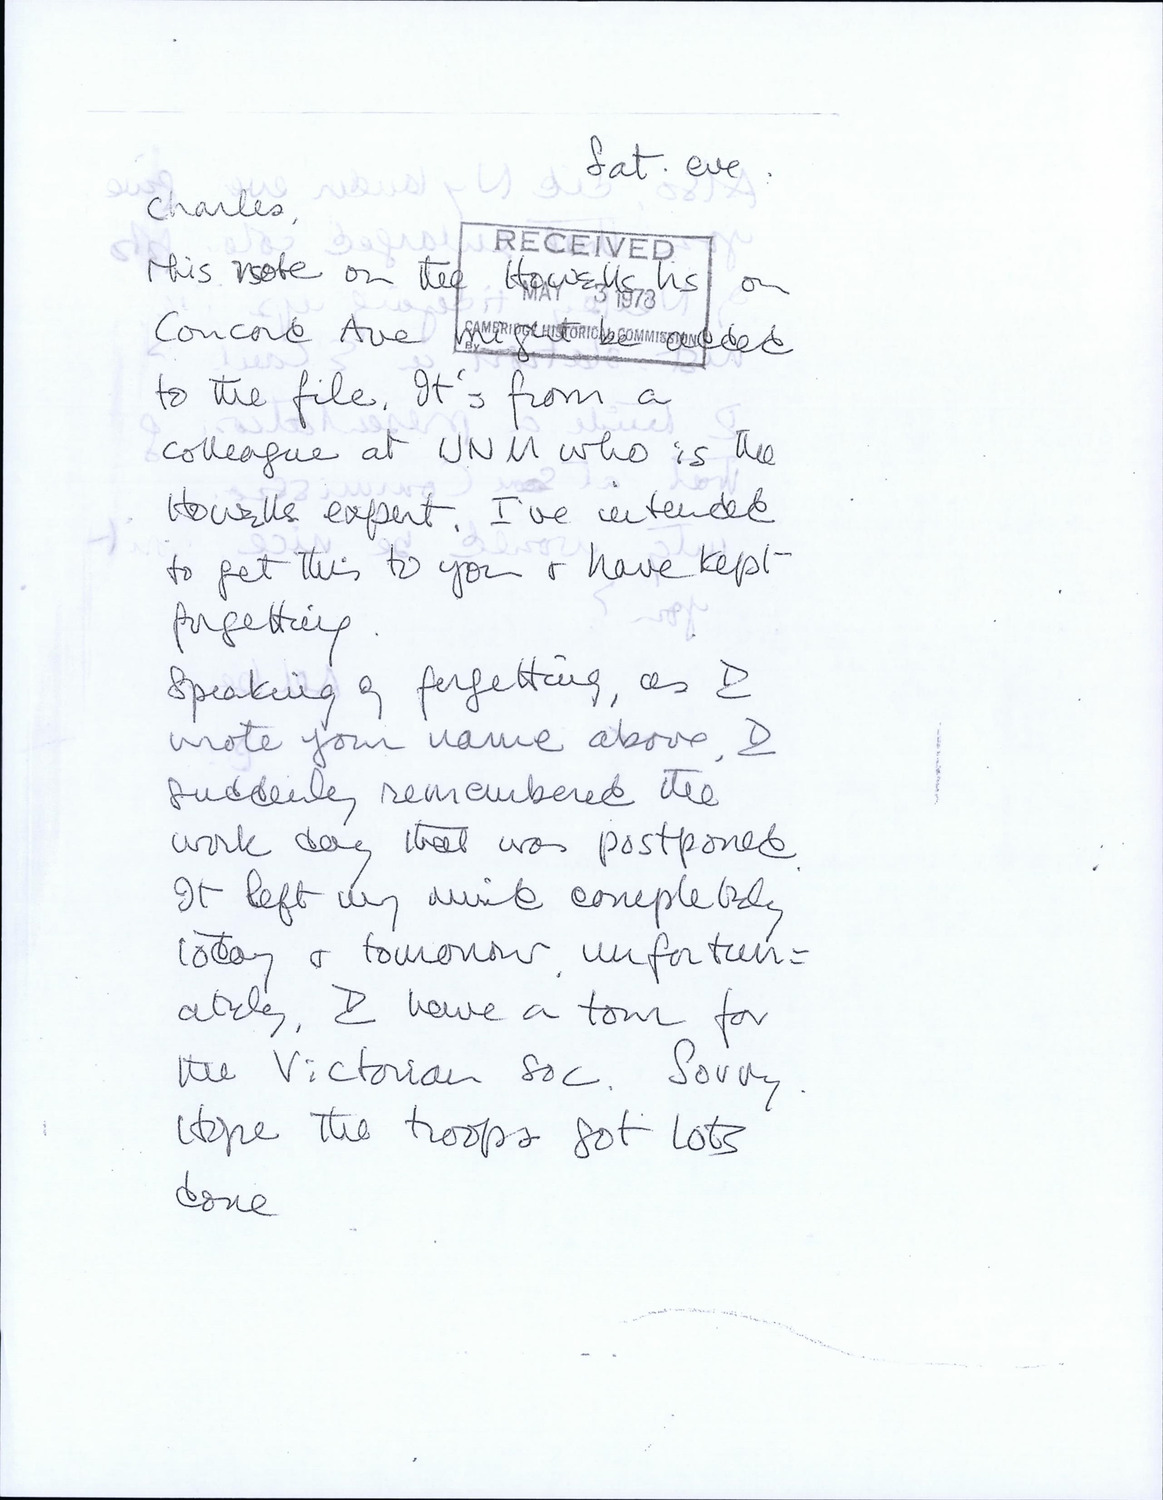 Sat. eve.
Charles,
RECEIVED
MAY 3 1973
CAMBRIDGE HISTORICAL COMMISSION
By
This note on the Howells hs on
Concord Ave might be added
to the file. It's from a
colleague at UNM who is the
Howells expert. I've intended
to get this to you & have kept
forgetting.
Speaking of forgetting, as I
wrote your name above, I
suddenly remembered the
work day that was postponed.
It left my mind completely
today & tomorrow, unfortun=
ately, I have a tour for
the Victorian Soc. Sorry.
Hope the troops got lots
done